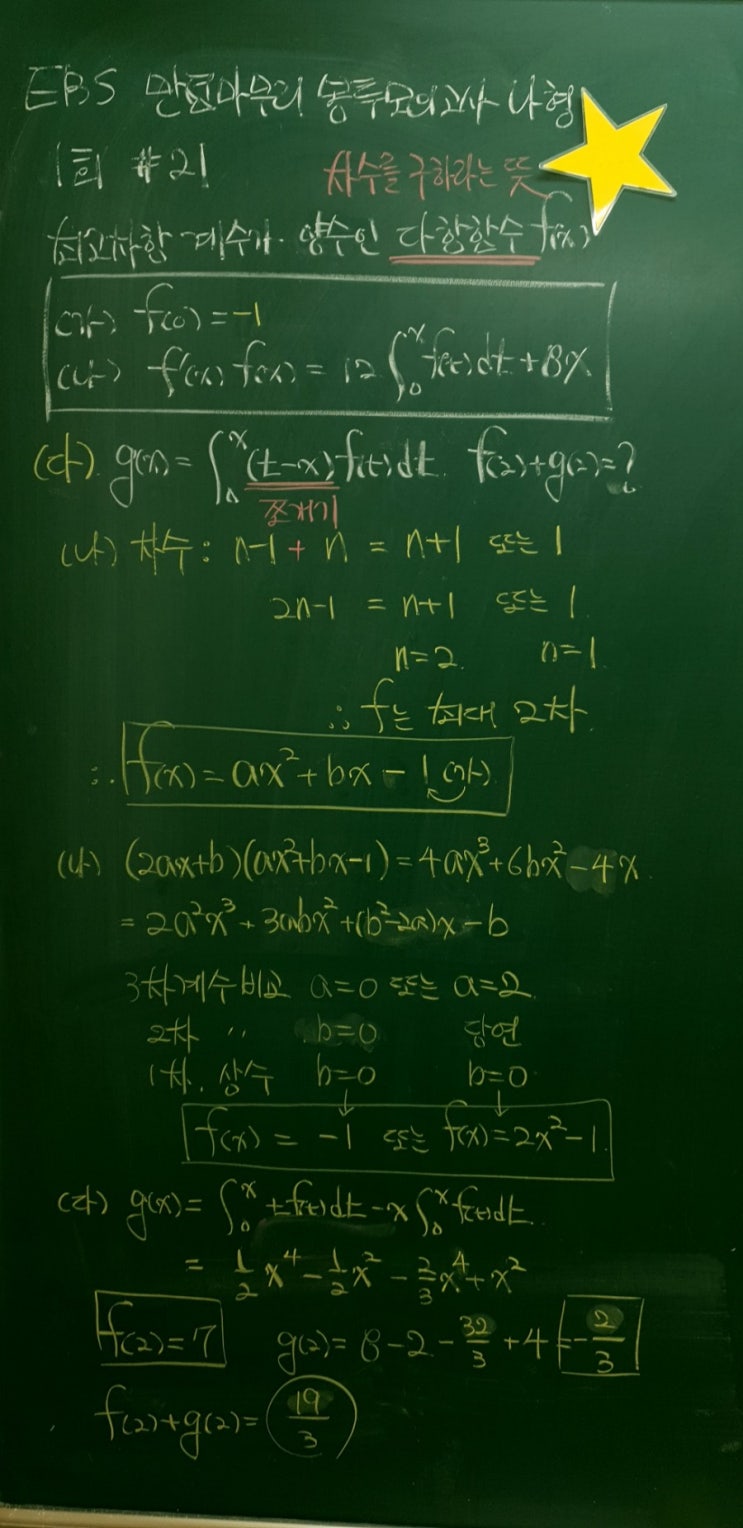 EBS 만점마무리 봉투모의고사 나형
1회 #21 차수를 구하라는 뜻
최고차항 계수가 양수인 다항함수 f(x)
(가) f(0)=-1
(나) f'(x)f(x)=12∫₀ˣf(t)dt+8x
(다) g(x)=∫₀ˣ(t-x)f(t)dt. f(2)+g(2)=?
쪼개기
(나) 차수: n-1+n=n+1 또는 1
2n-1=n+1 또는 1.
n=2. n=1.
∴ f는 최대 2차.
∴ f(x)=ax²+bx-1 (가)
(나) (2ax+b)(ax²+bx-1)=4ax³+6bx²-4x.
=2a²x³+3abx²+(b²-2a)x-b
3차계수비교 a=0 또는 a=2.
2차 〃 b=0 당연
1차, 상수 b=0 b=0
f(x)=-1 또는 f(x)=2x²-1.
(다) g(x)=∫₀ˣtf(t)dt-x∫₀ˣf(t)dt.
=1/2x⁴-1/2x²-2/3x⁴+x²
f(2)=7 g(2)=8-2-32/3+4=-2/3
f(2)+g(2)=19/3